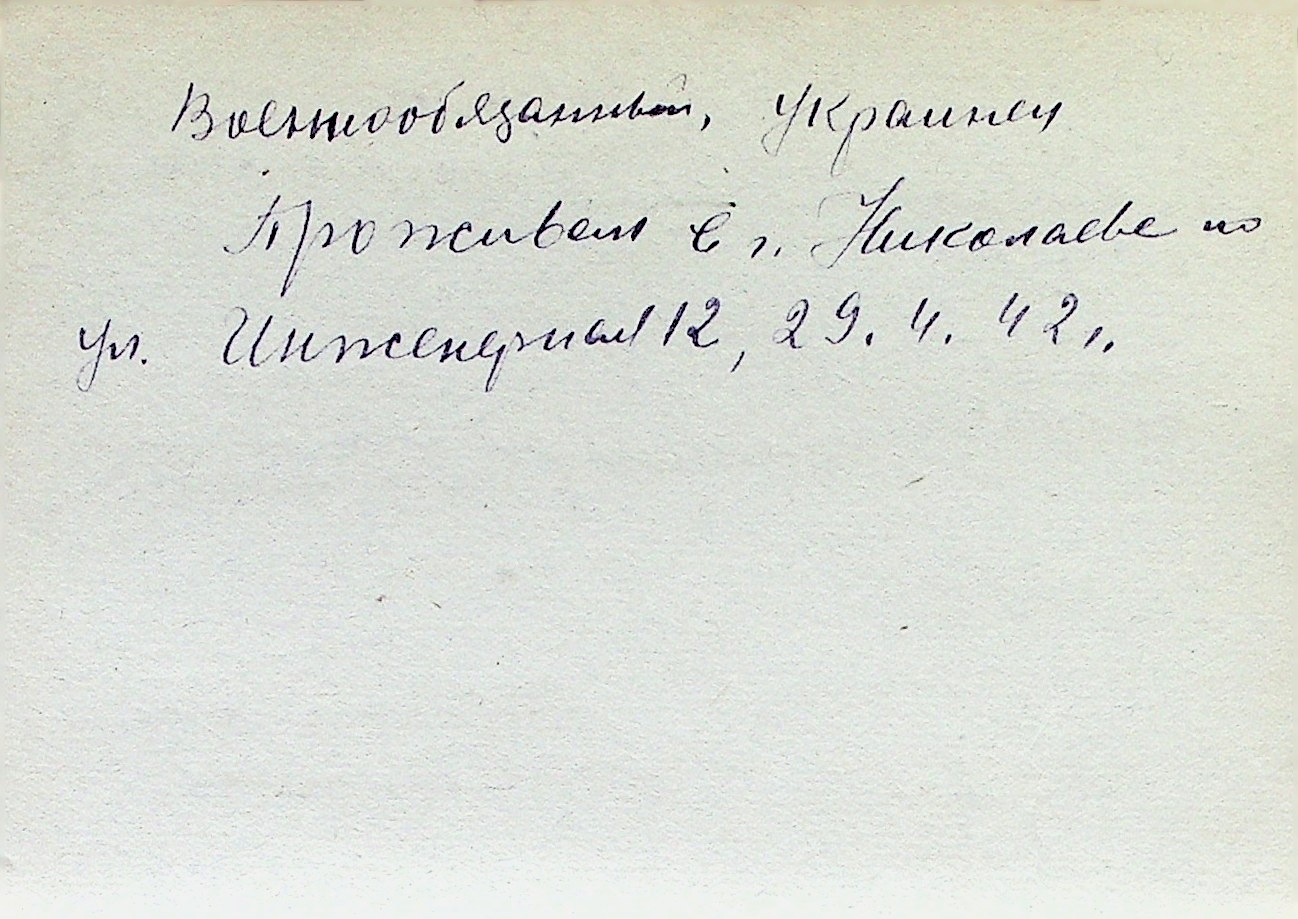 Военнообязанный, украинец
Проживал в г. Николаеве по
ул. Инженерная 12, 29. 4. 42 г.